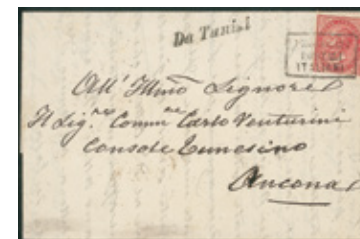 Da Tunisi
ITALIANI
All' Illmo Signore
Il Sig.re Comm.re Carlo Venturini
Console Tunesino
Ancona